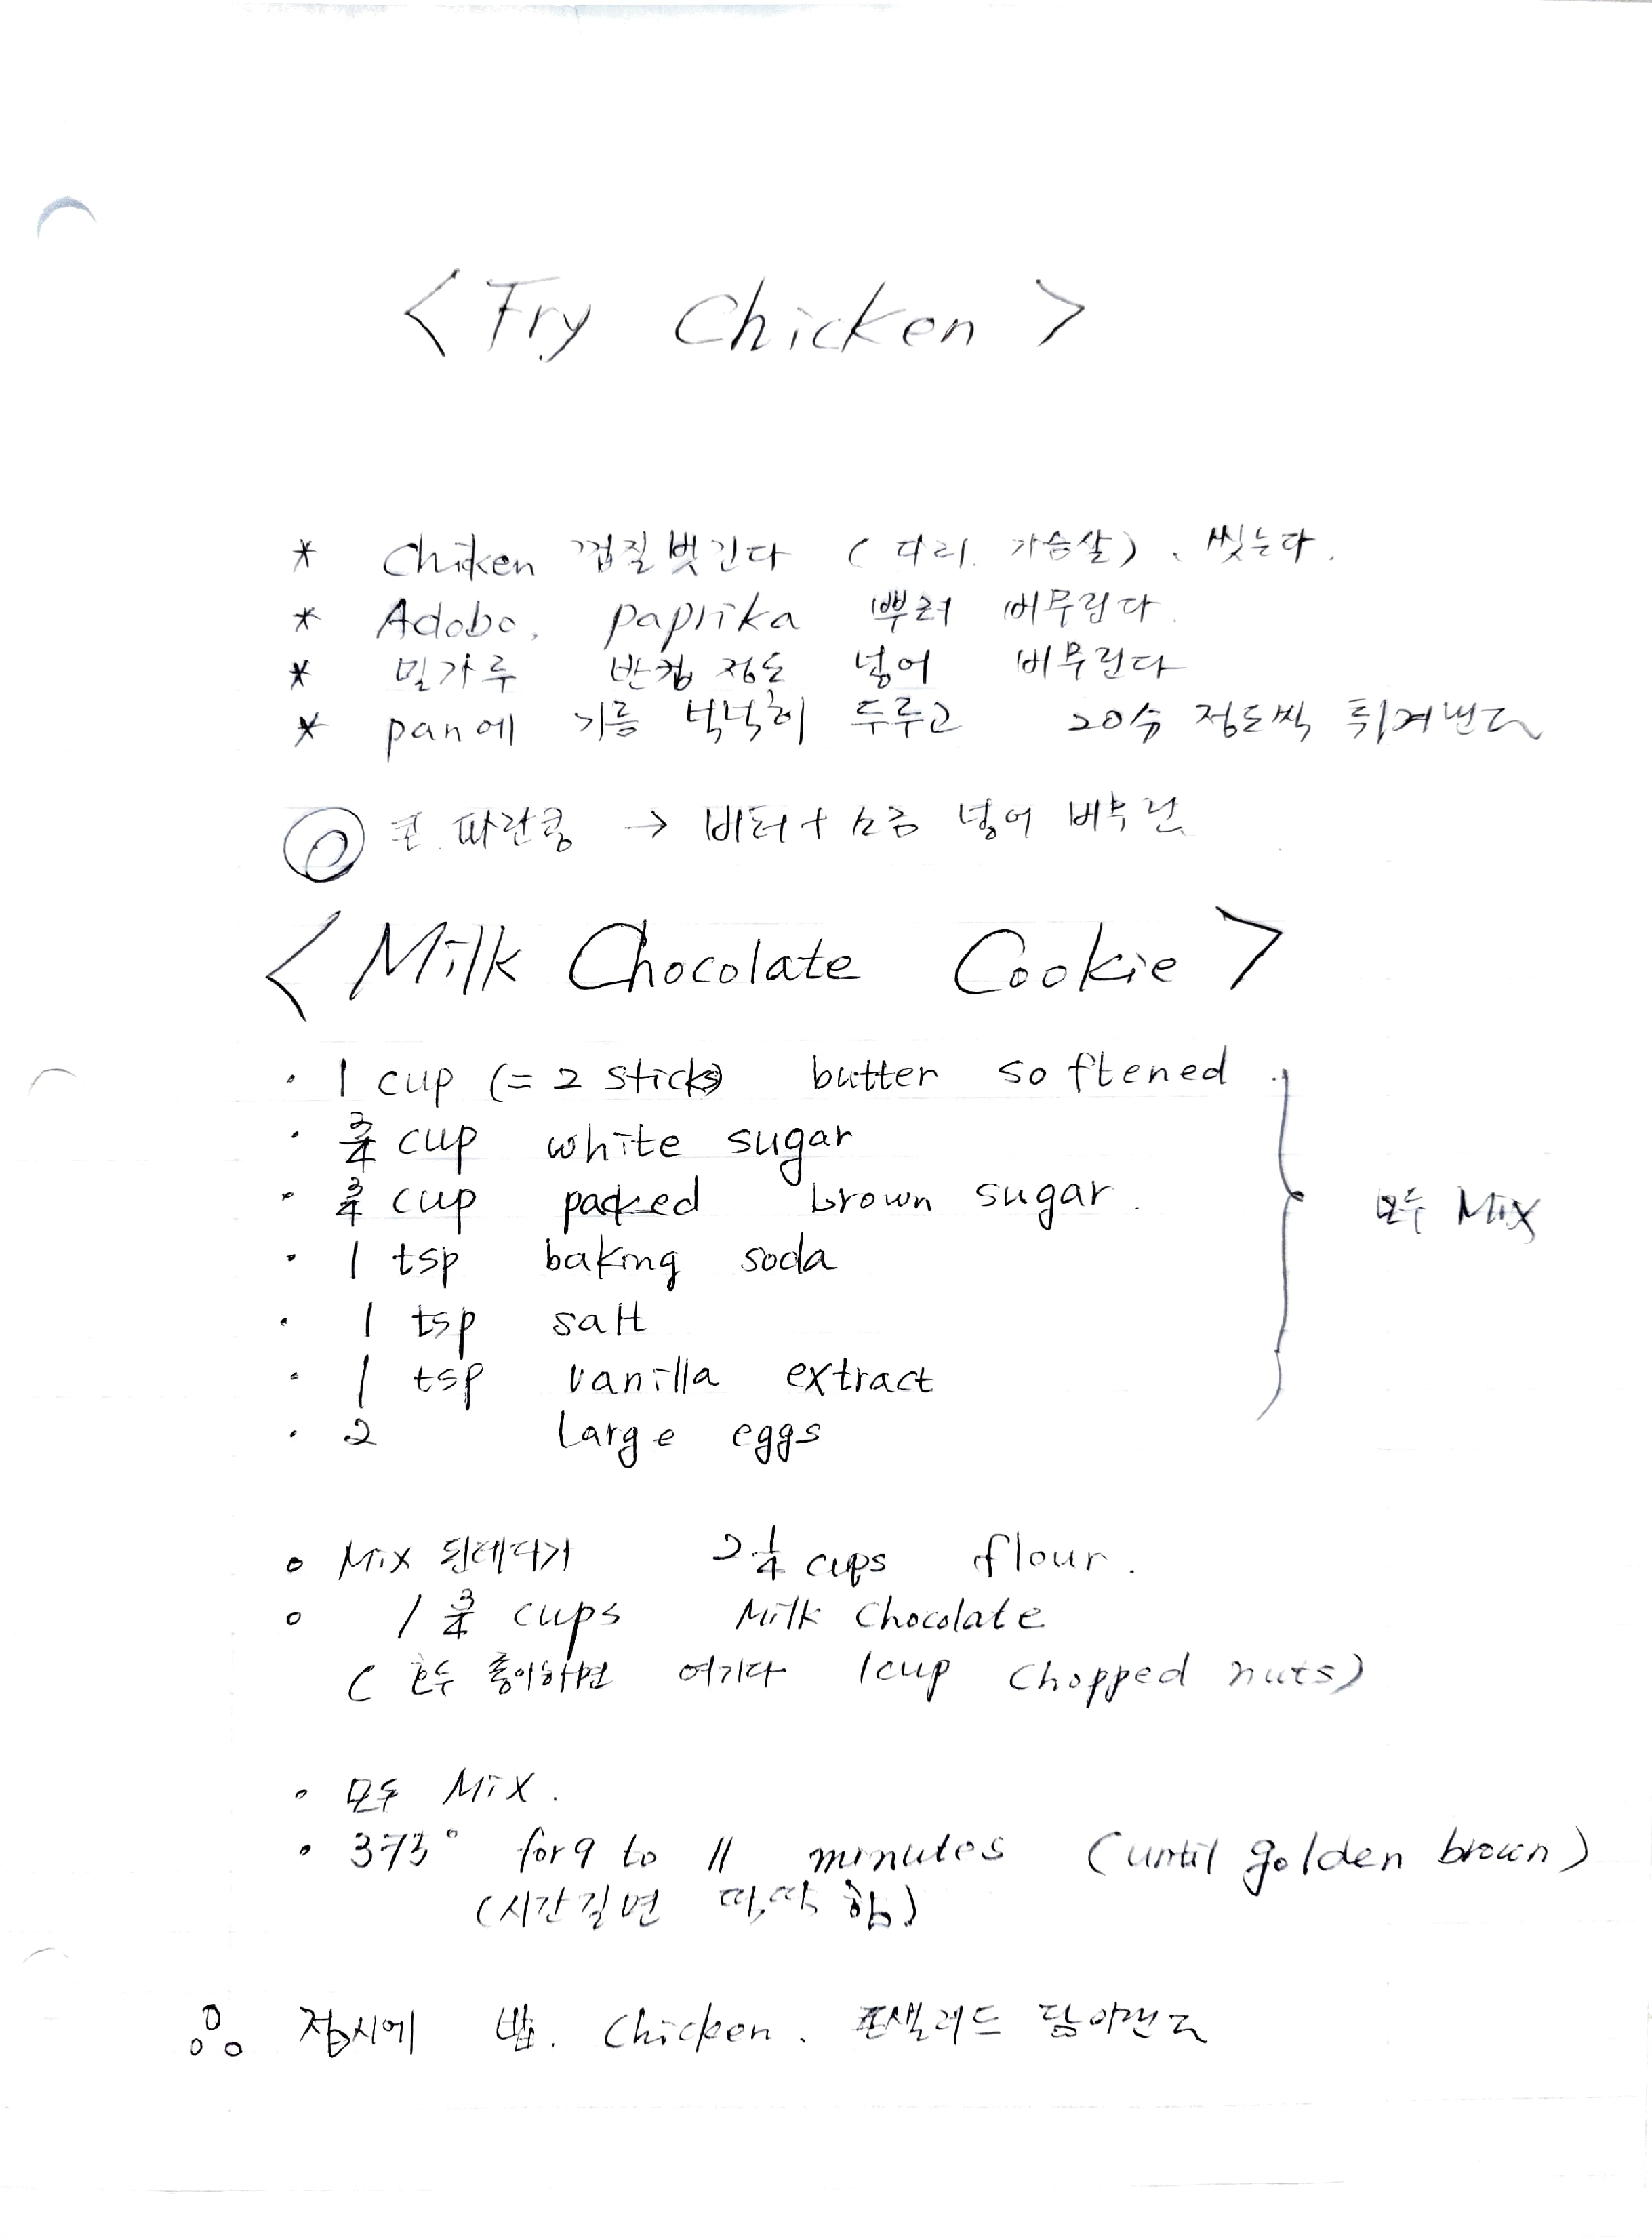 < Fry Chicken >
* Chiken 껍질벗긴다 (다리. 가슴살), 씻는다.
* Adobo, paprika 뿌려 버무린다.
* 밀가루 반컵 정도 넣어 버무린다
* pan에 기름 넉넉히 두루고 20分 정도씩 튀겨낸다
◎ 콘. 파란콩 → 버터 + 소금 넣어 버무린
< Milk Chocolate Cookie >
· 1 cup (= 2 sticks) butter softened.
· 3/4 cup white sugar
· 3/4 cup packed brown sugar.
· 1 tsp baking soda
· 1 tsp salt
· 1 tsp vanilla extract
· 2 large eggs
모두 Mix
∘ Mix 된데다가 2 1/4 cups flour.
∘ 1 3/4 cups Milk Chocolate
( 호두 좋아하면 여기다 1cup Chopped nuts)
· 모두 Mix.
· 375° for 9 to 11 minutes (until golden brown)
(시간길면 딱딱함)
ஃ 접시에 밥. Chicken. 콘샐러드 담아낸다